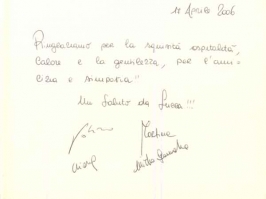 11 Aprile 2006
Ringraziamo per la squisita ospitalità,
calore e la gentilezza, per l'ami-
cizia e simpatia"
Un Saluto da Lucca!!!
Martina
Chiara